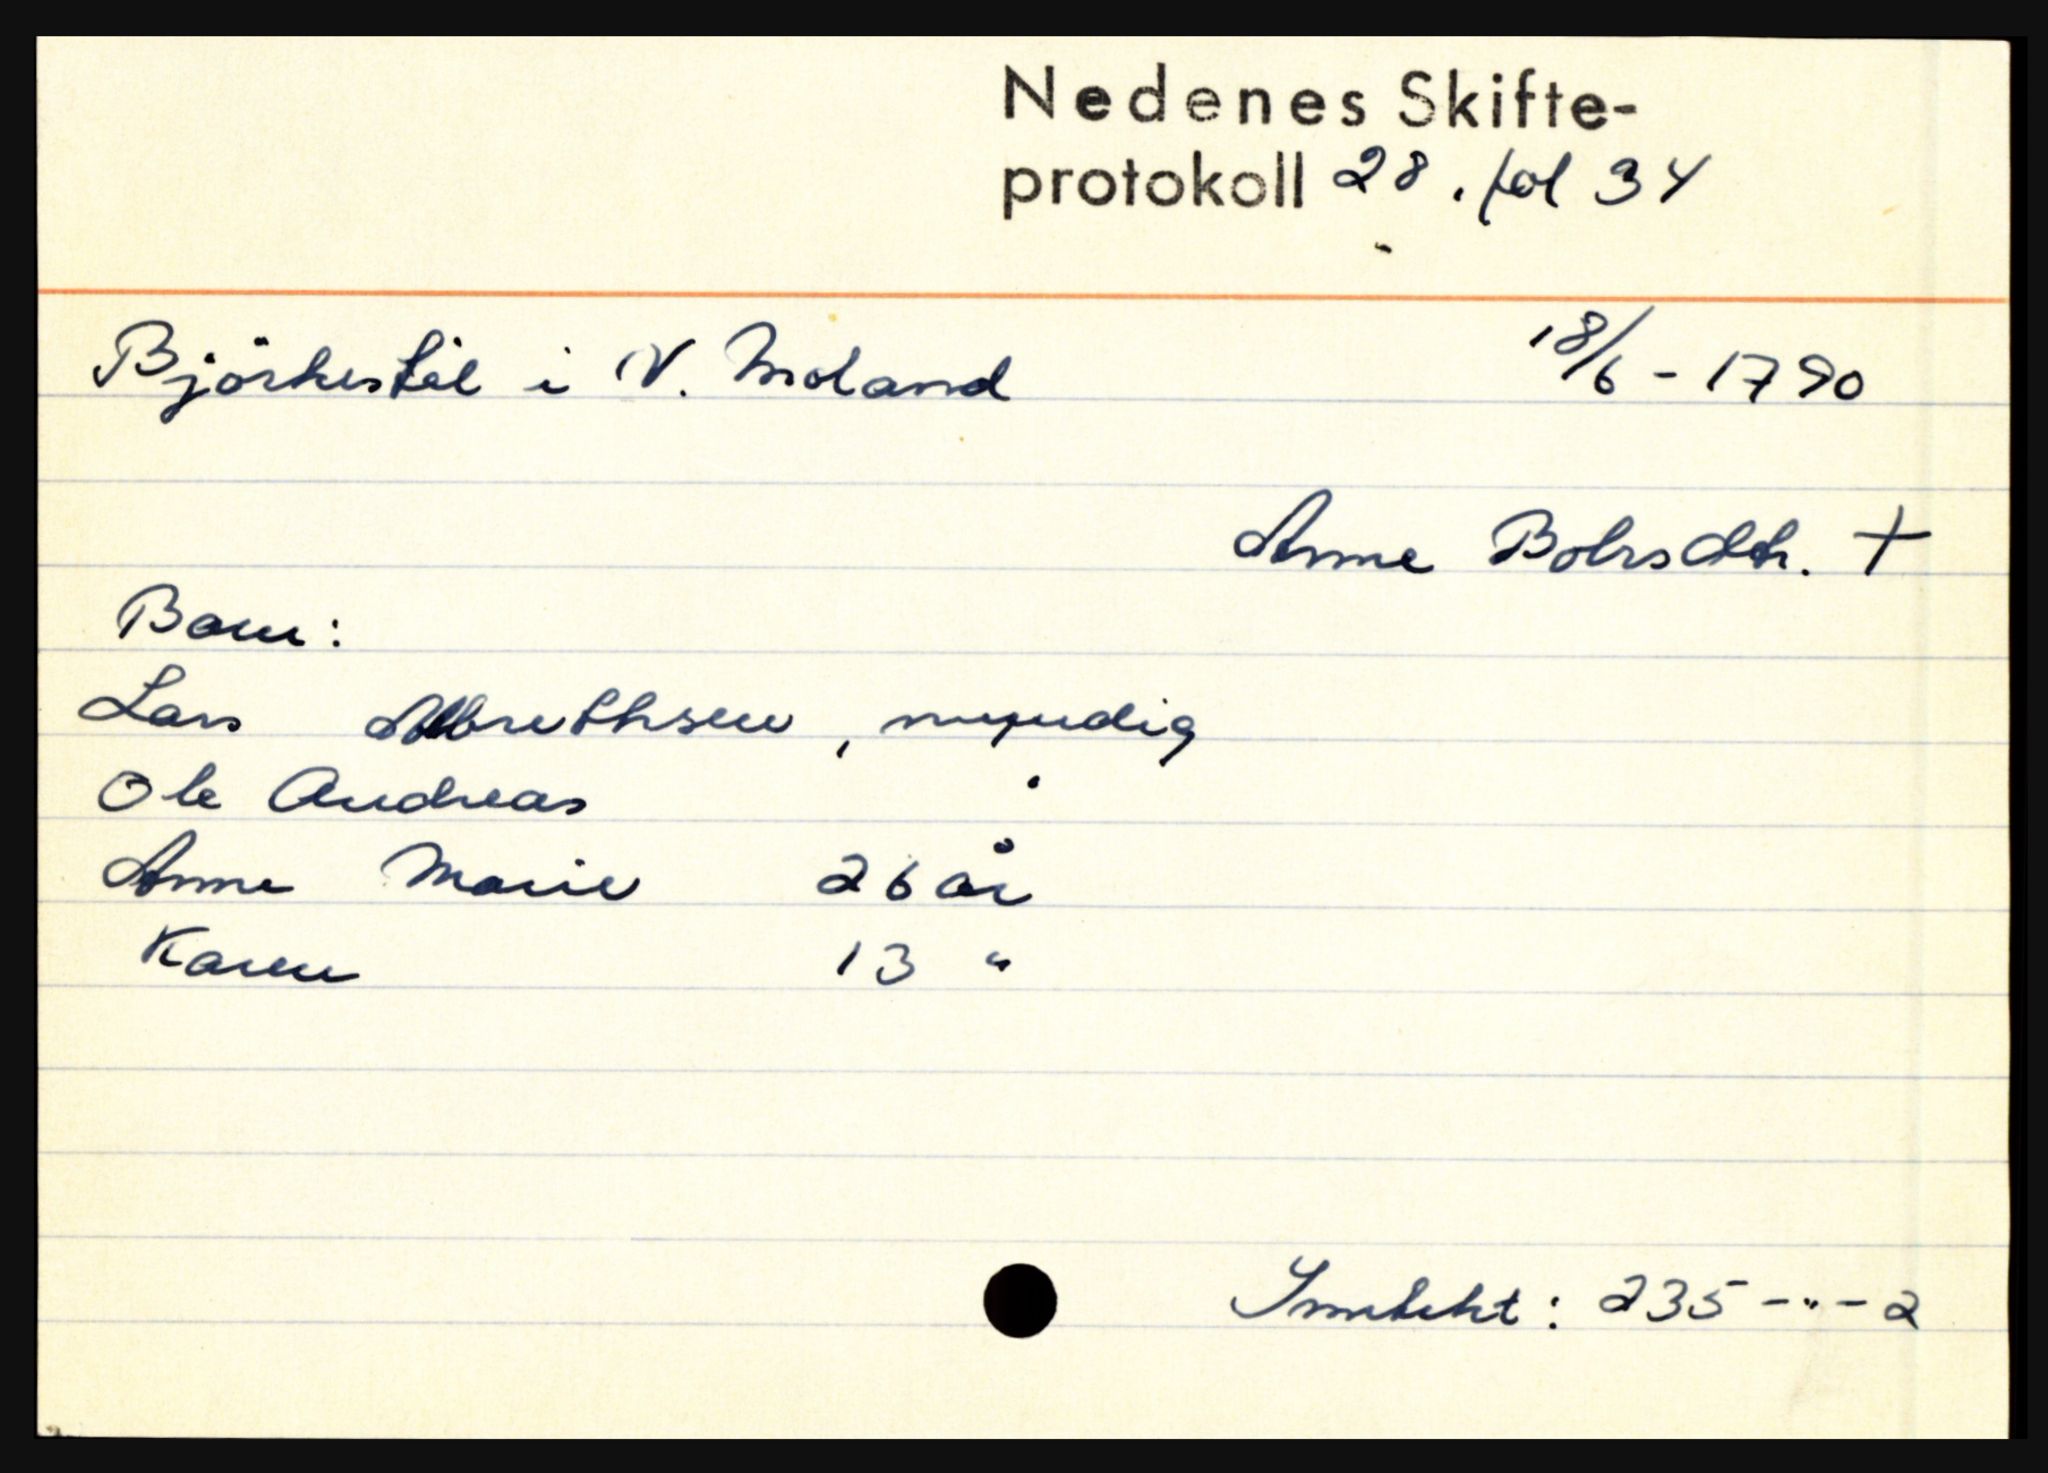 Nedenes Skifte-
protokoll 28. fol 34
Björkestøl i V. Moland 18/6 - 1790
Anne Bohrsdtr. +
Barn:
Lars Albrethsen, myndig
Ole Andreas
Anne Marie 26 år
Karen 13 "
Inntekt: 235 - " - 2